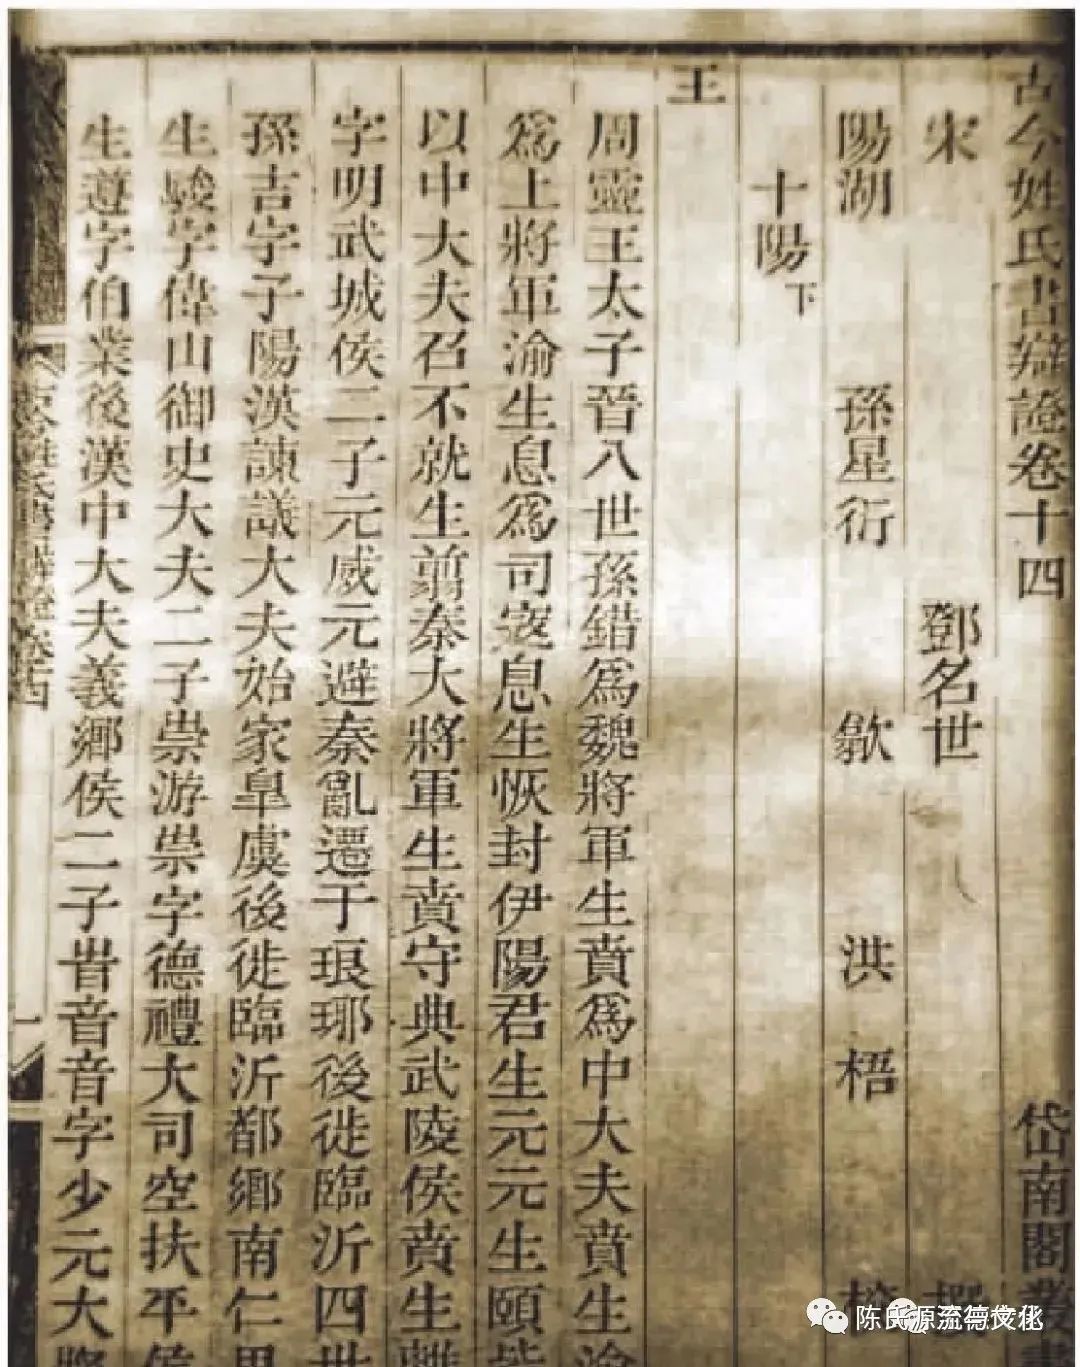 古今姓氏書辯證卷十四 岱南閣叢書
宋 鄧名世 撰
陽湖 孫星衍 歙 洪梧 校
十陽下
王
周靈王太子晉八世孫錯爲魏將軍生賁爲中大夫賁生渝
爲上將軍渝生息爲司寇息生恢封伊陽君生元元生頤皆
以中大夫召不就生翦秦大將軍生賁守典武陵侯賁生離
字明武城侯二子元威元避秦亂遷于琅琊後徙臨沂四世
孫吉字子陽漢諫議大夫始家臯虞後徙臨沂都鄉南仁里
生駿字偉山御史大夫二子崇游崇字德禮大司空扶平侯
生遵字伯業後漢中大夫義鄉侯二子旹音音字少元大將
古今姓氏書辯證卷十四
一
陈氏源流